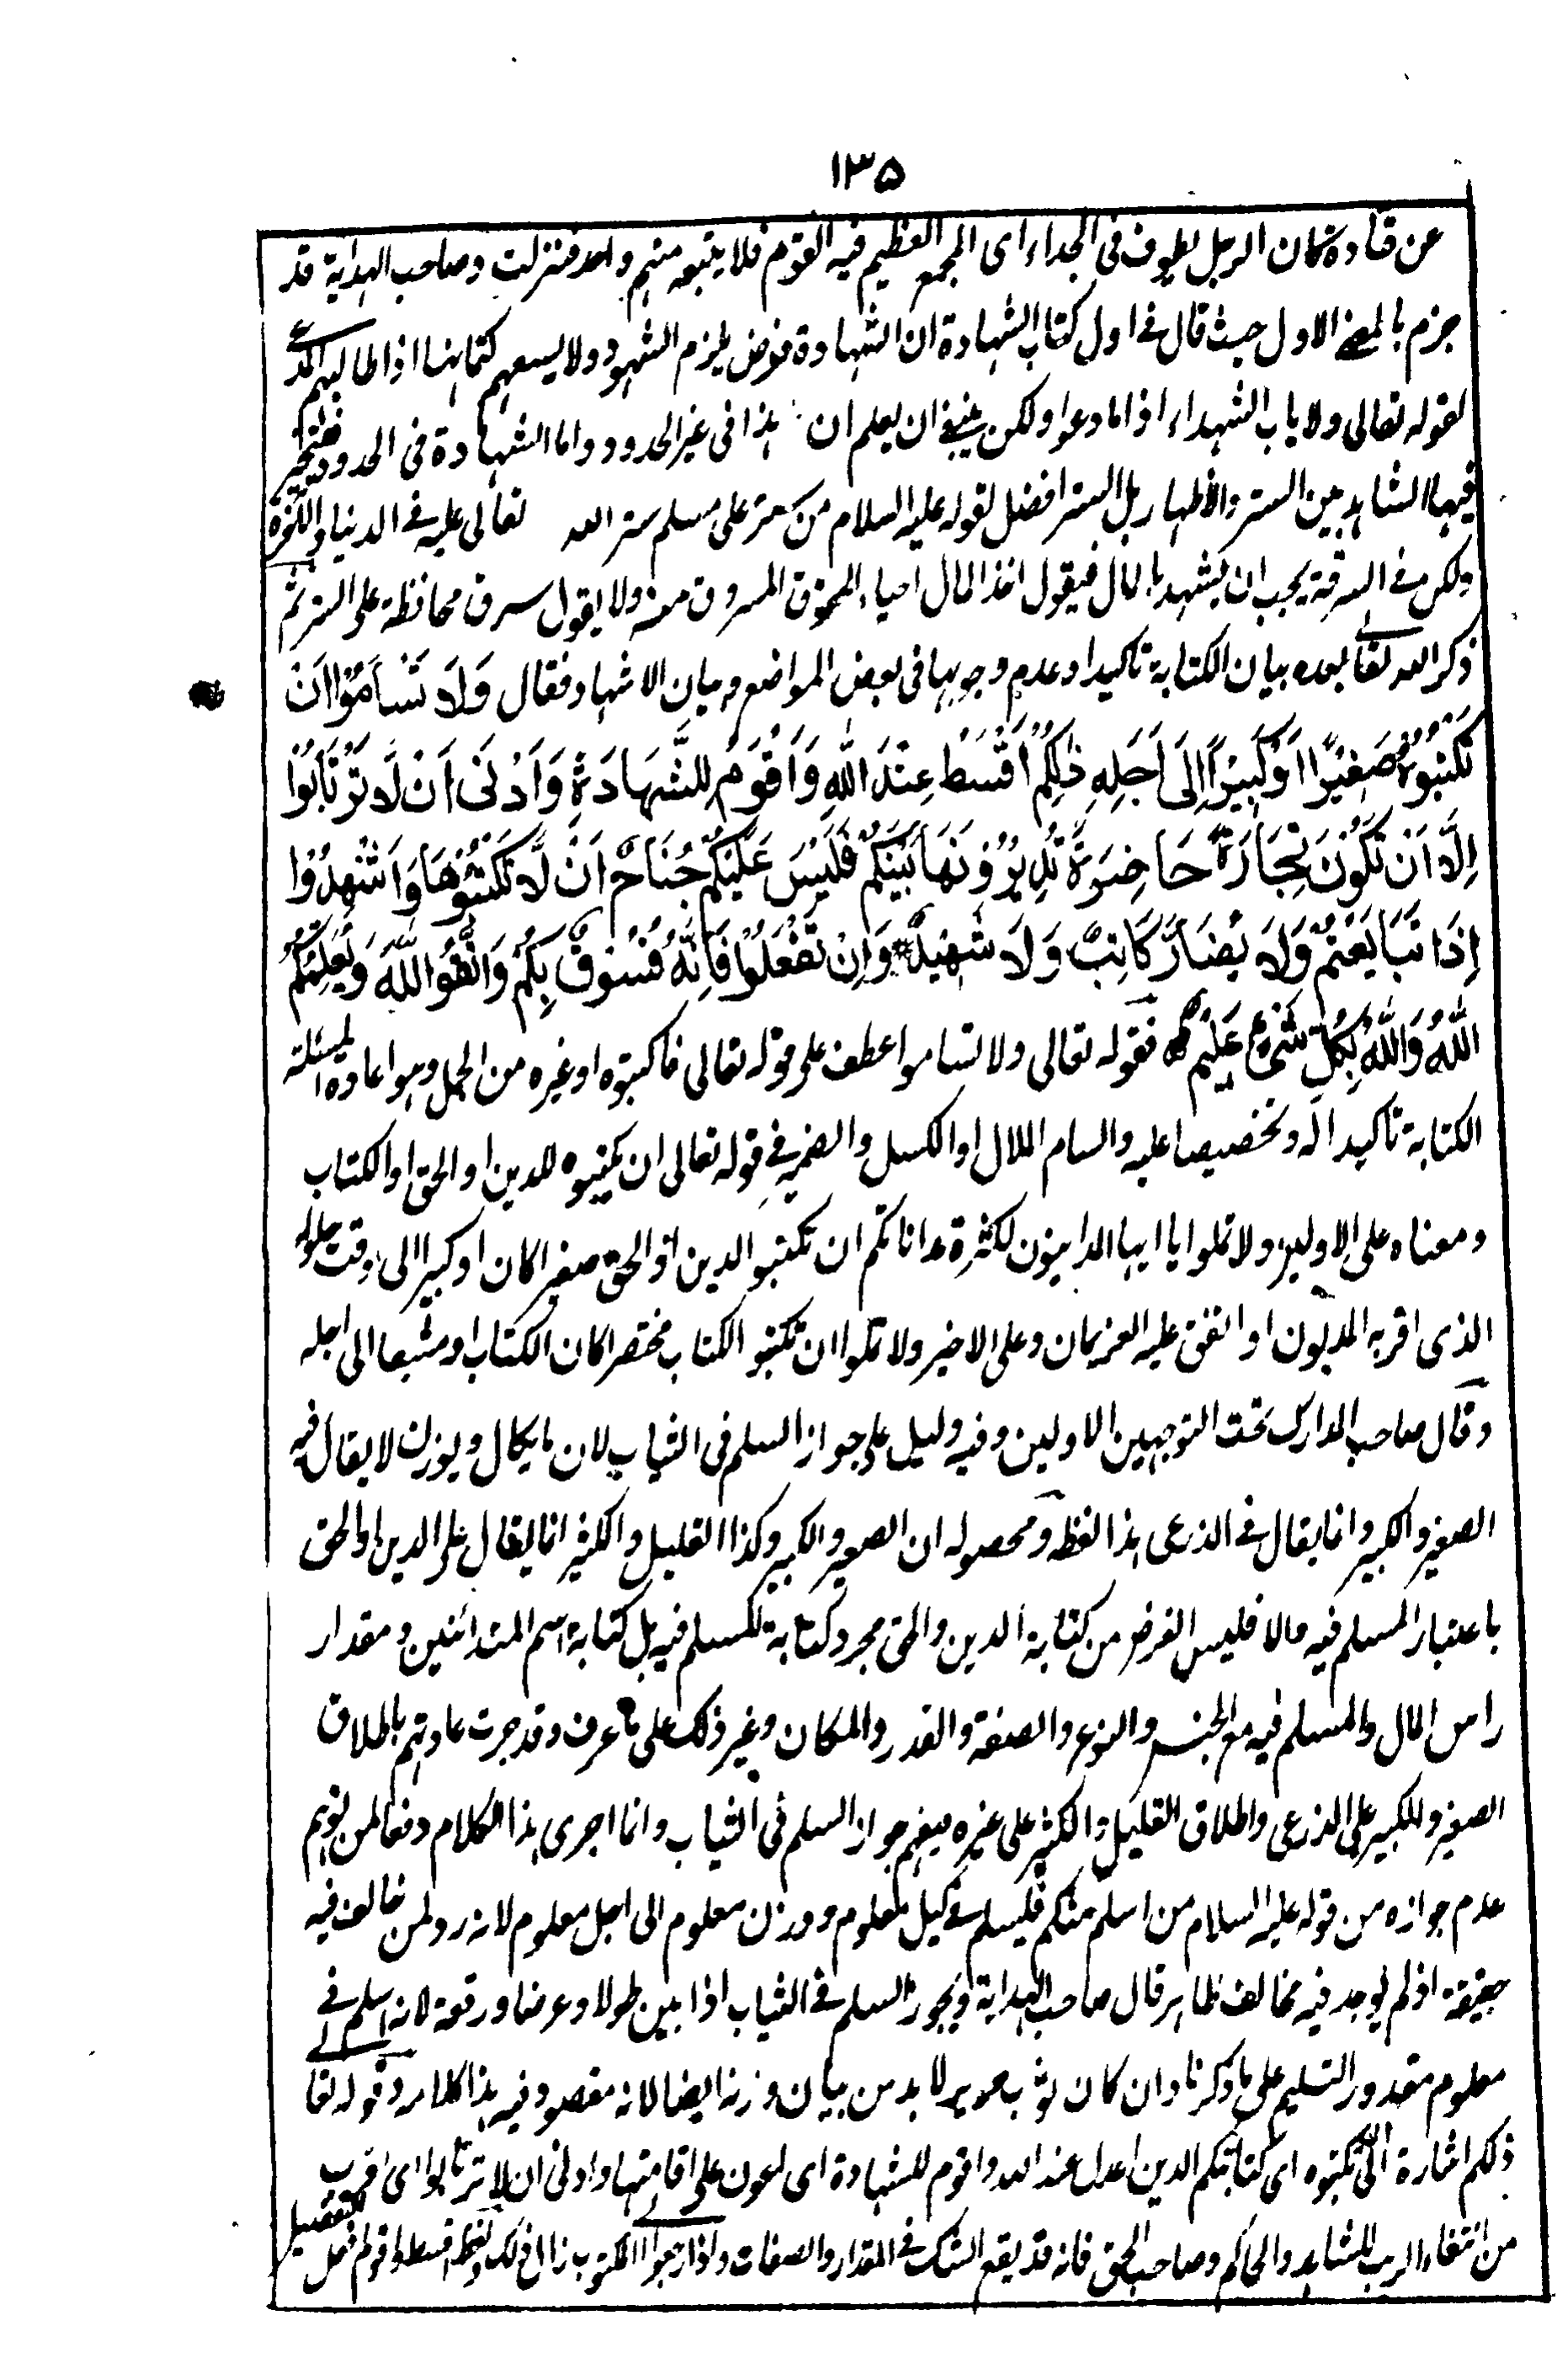 ١٣٥
عن قتادة كان الرجل يطوف فى الجداء اى المجمع العظيم فيه القوم فلا يتبعه منهم واحد فنزلت وصاحب الهداية قد
جزم بالمعنے الاول حيث قال فے اول كتاب الشهادة ان الشهادة فرض يلزم الشهود ولا يسعهم كتمانها اذا طالبهم المدعے
لقوله تعالى ولا ياب الشهداء اذا ما دعوا ولكن ينبغے ان يعلم ان هذا فى غير الحدود واما الشهادة فى الحدود فيتخير
فيها الشاهد بين الستر والاظهار بل الستر افضل لقوله عليه السلام من ستر على مسلم ستر الله تعالى عليه فے الدنيا والآخرة
ولكن فے السرقة يجب ان يشهد بالمال فيقول اخذ المال احياء لحق المسروق منه ولا يقول سرق محافظة على الستر ثم
ذكر الله تعالے بعده بيان الكتابة تاكيدا وعدم وجوبها فى بعض المواضع وبيان الاشهاد فقال وَلَا تَسْأَمُوْا اَنْ
تَكْتُبُوْهُ صَغِيْرًا اَوْ كَبِيْرًا اِلَى اَجَلِهٖ ذٰلِكُمْ اَقْسَطُ عِنْدَ اللّٰهِ وَاَقْوَمُ لِلشَّهَادَةِ وَاَدْنَى اَنْ لَّا تَرْتَابُوْا
اِلَّا اَنْ تَكُوْنَ تِجَارَةً حَاضِرَةً تُدِيْرُوْنَهَا بَيْنَكُمْ فَلَيْسَ عَلَيْكُمْ جُنَاحٌ اَنْ لَّا تَكْتُبُوْهَا وَاَشْهِدُوْا
اِذَا تَبَايَعْتُمْ وَلَا يُضَارَّ كَاتِبٌ وَلَا شَهِيْدٌ وَاِنْ تَفْعَلُوْا فَاِنَّهٗ فُسُوْقٌ بِكُمْ وَاتَّقُوا اللّٰهَ وَيُعَلِّمُكُمُ
اللّٰهُ وَاللّٰهُ بِكُلِّ شَيْءٍ عَلِيْمٌ فقوله تعالى ولا تساموا عطف على قوله تعالى فاكتبوه او غيره من الجمل وهو اعادة لمسئلة
الكتابة تاكيدا له وتخصيصا عليه والسام الملال او الكسل والضمير فے قوله تعالى ان تكتبوه للدين او الحق او الكتاب
ومعناه على الاولين ولا تملوا يا ايها المداينون لكثرة مداناتكم ان تكتبوا الدين او الحق صغيرا كان او كبيرا الى وقت حلوله
الذى اقر به المديون او اتفق عليه الغريمان وعلى الاخير ولا تملوا ان تكتبو الكتاب مختصرا كان الكتاب او مشبعا الى اجله
وقال صاحب المدارك تحت التوجيهين الاولين وفيه دليل على جواز السلم فى الثياب لان ما يكال ويوزن لا يقال فيه
الصغير والكبير وانما يقال فے الذرعى هذا لفظه ومحصوله ان الصغير والكبير وكذا القليل والكثير انما يقال على الدين او الحق
باعتبار المسلم فيه مالا فليس الغرض من كتابة الدين والحق مجرد كتابة المسلم فيه بل كتابة اسم المتدائنين ومقدار
راس المال والمسلم فيه مع الجنس والنوع والصفة والقدر والمكان وغير ذلك على ما عرف وقد جرت عادتهم باطلاق
الصغير والكبير على الذرعى واطلاق القليل والكثير على غيره فيفهم جواز السلم فى الثياب وانما اجرى هذا الكلام دفعا لمن توهم
عدم جوازه من قوله عليه السلام من اسلم منكم فليسلم فے كيل معلوم ووزن معلوم الى اجل معلوم لا انه رد لمن خالف فيه
حقيقة اذ لم يوجد فيه مخالف ظاهر قال صاحب الهداية ويجوز السلم فے الثياب اذا بين طولا وعرضا ورقعة لانه اسلم فے
معلوم مقدور التسليم على ما ذكرنا وان كان ثوب حرير لا بد من بيان وزنه ايضا لانه مقصود فيه هذا كلامه وقوله تعالے
ذلكم اشارة الى ان تكتبوه اى كتابتكم الدين اعدل عند الله واقوم للشهادة اى اعون على اقامتها وادنى ان لا ترتابوا اى اقرب
من انتفاء الريب للشاهد والحاكم وصاحب الحق فانه قد يقع الشك فے المقدار والصفات واذا رجعوا الى المكتوب زال ذلك ولفظ اقسط واقوم افعل التفضيل